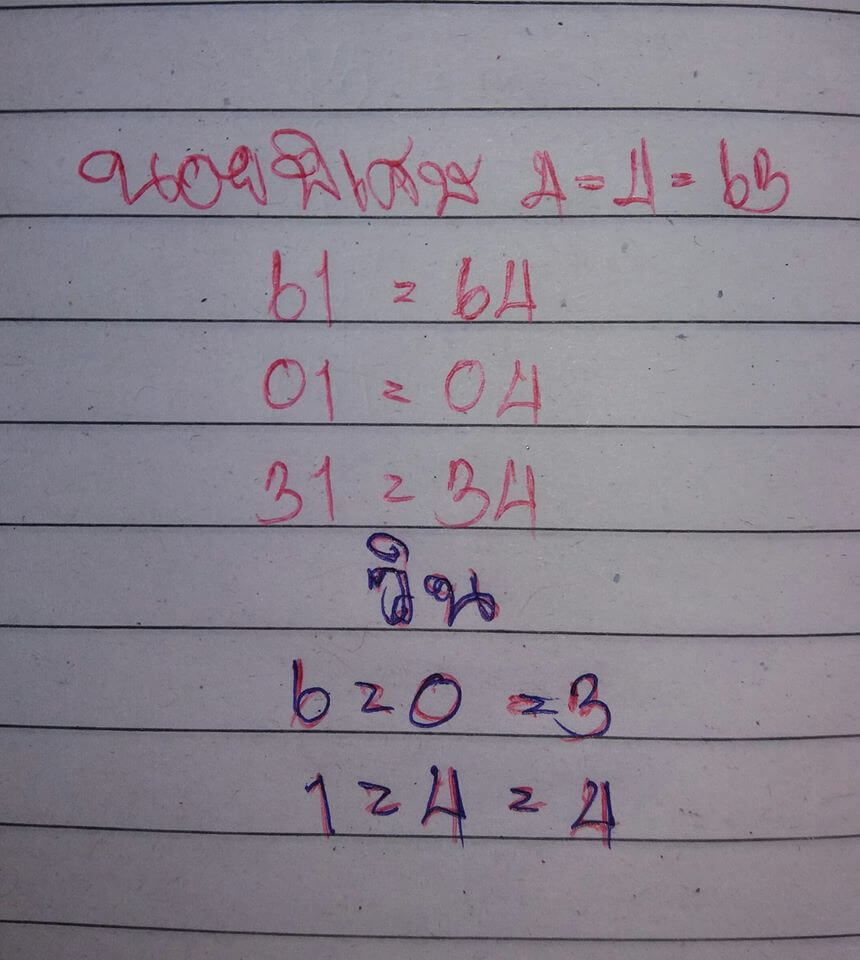 นอยพิเศษ 4=4=63
61 = 64
01 = 04
31 = 34
วิน
6=0=3
1=4=4